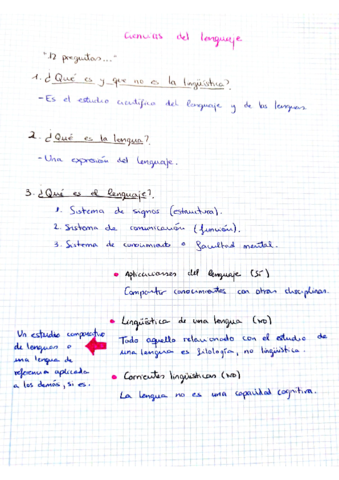 Ciencias del lenguaje
"12 preguntas..."
1. ¿Qué es y que no es la lingüística?
- Es el estudio científico del lenguaje y de las lenguas
2. ¿Qué es la lengua?
- Una expresión del lenguaje.
3. ¿Qué es el lenguaje?
1. Sistema de signos (estructura).
2. Sistema de comunicación (función).
3. Sistema de conocimiento o facultad mental.
• Aplicaciones del lenguaje (sí)
Compartir conocimientos con otras disciplinas.
• Lingüística de una lengua (no)
Todo aquello relacionado con el estudio de
una lengua es filología, no lingüística.
Un estudio comparativo
de lenguas o
una lengua de
referencia aplicada
a los demás, si es.
• Corrientes lingüísticas (no)
La lengua no es una capacidad cognitiva.